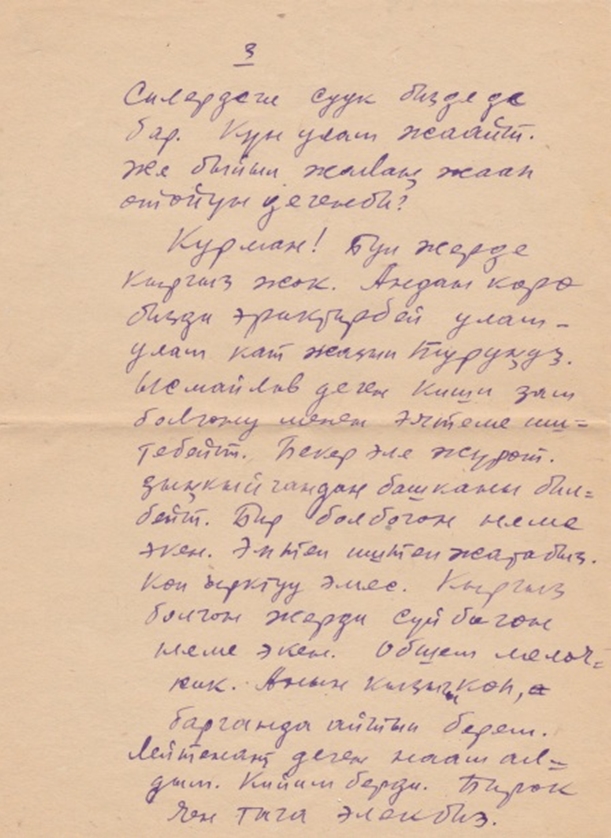 3
Силердеги суук бизде да
бар. Күн улам жаайт.
Же быйыл жалаң жаан
отойун дегенби?
Курман! Бул жерде
Кыргыз жок. Андан көрө
бизди эриктирбей улам-
улам кат жазып турунуз.
Ысмайлов деген Киши зам
болгону менен эчтеме иш=
тебейт. Бекер эле журөт.
зыңкыйгандан башканы бил=
бейт. Бир болбогон неме
экен. Эптеп иштеп жатабыз.
Көп ырктуу эмес. Кыргыз
болгон жерди сүйбөгөн
неме экен. Общем мелоч=
ник. Анын кызыгы көп,
барганда айтып берем.
Лейтенант деген наам ал=
дым. Кийим берди. Бирок
чен тага элекбиз.